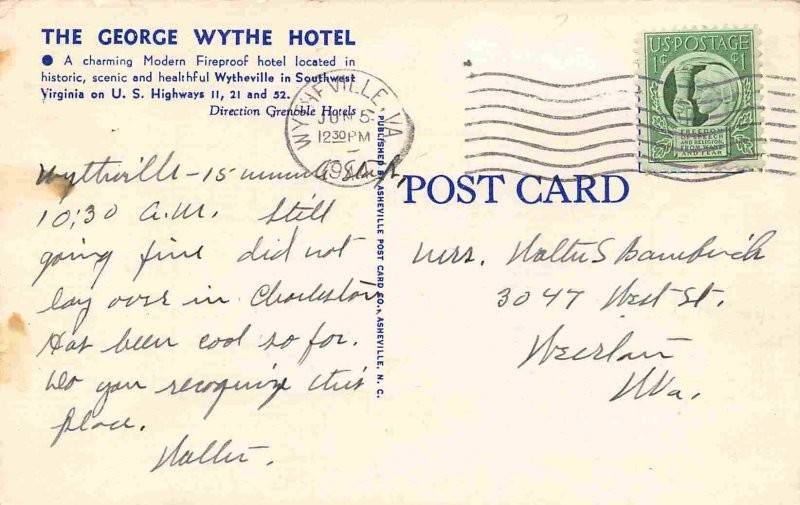 THE GEORGE WYTHE HOTEL
● A charming Modern Fireproof hotel located in
historic, scenic and healthful Wytheville in Southwest
Virginia on U. S. Highways 11, 21 and 52.
Direction Grenoble Hotels
WYTHEVILLE, VA.
JUN 5
12 30 PM
U.S. POSTAGE
1¢ ¢1
FREEDOM
OF SPEECH
AND RELIGION,
FROM WANT
AND FEAR
POST CARD
PUBLISHED BY ASHEVILLE POST CARD CO., ASHEVILLE, N. C.
Wytheville - 15 minute stop,
10:30 A.M. Still
going fine did not
lay over in Charleston
Has been cool so far.
Do you recognize this
place.
Walter.
Mrs. Walter S
3047 West St.
Weirton
W Va.